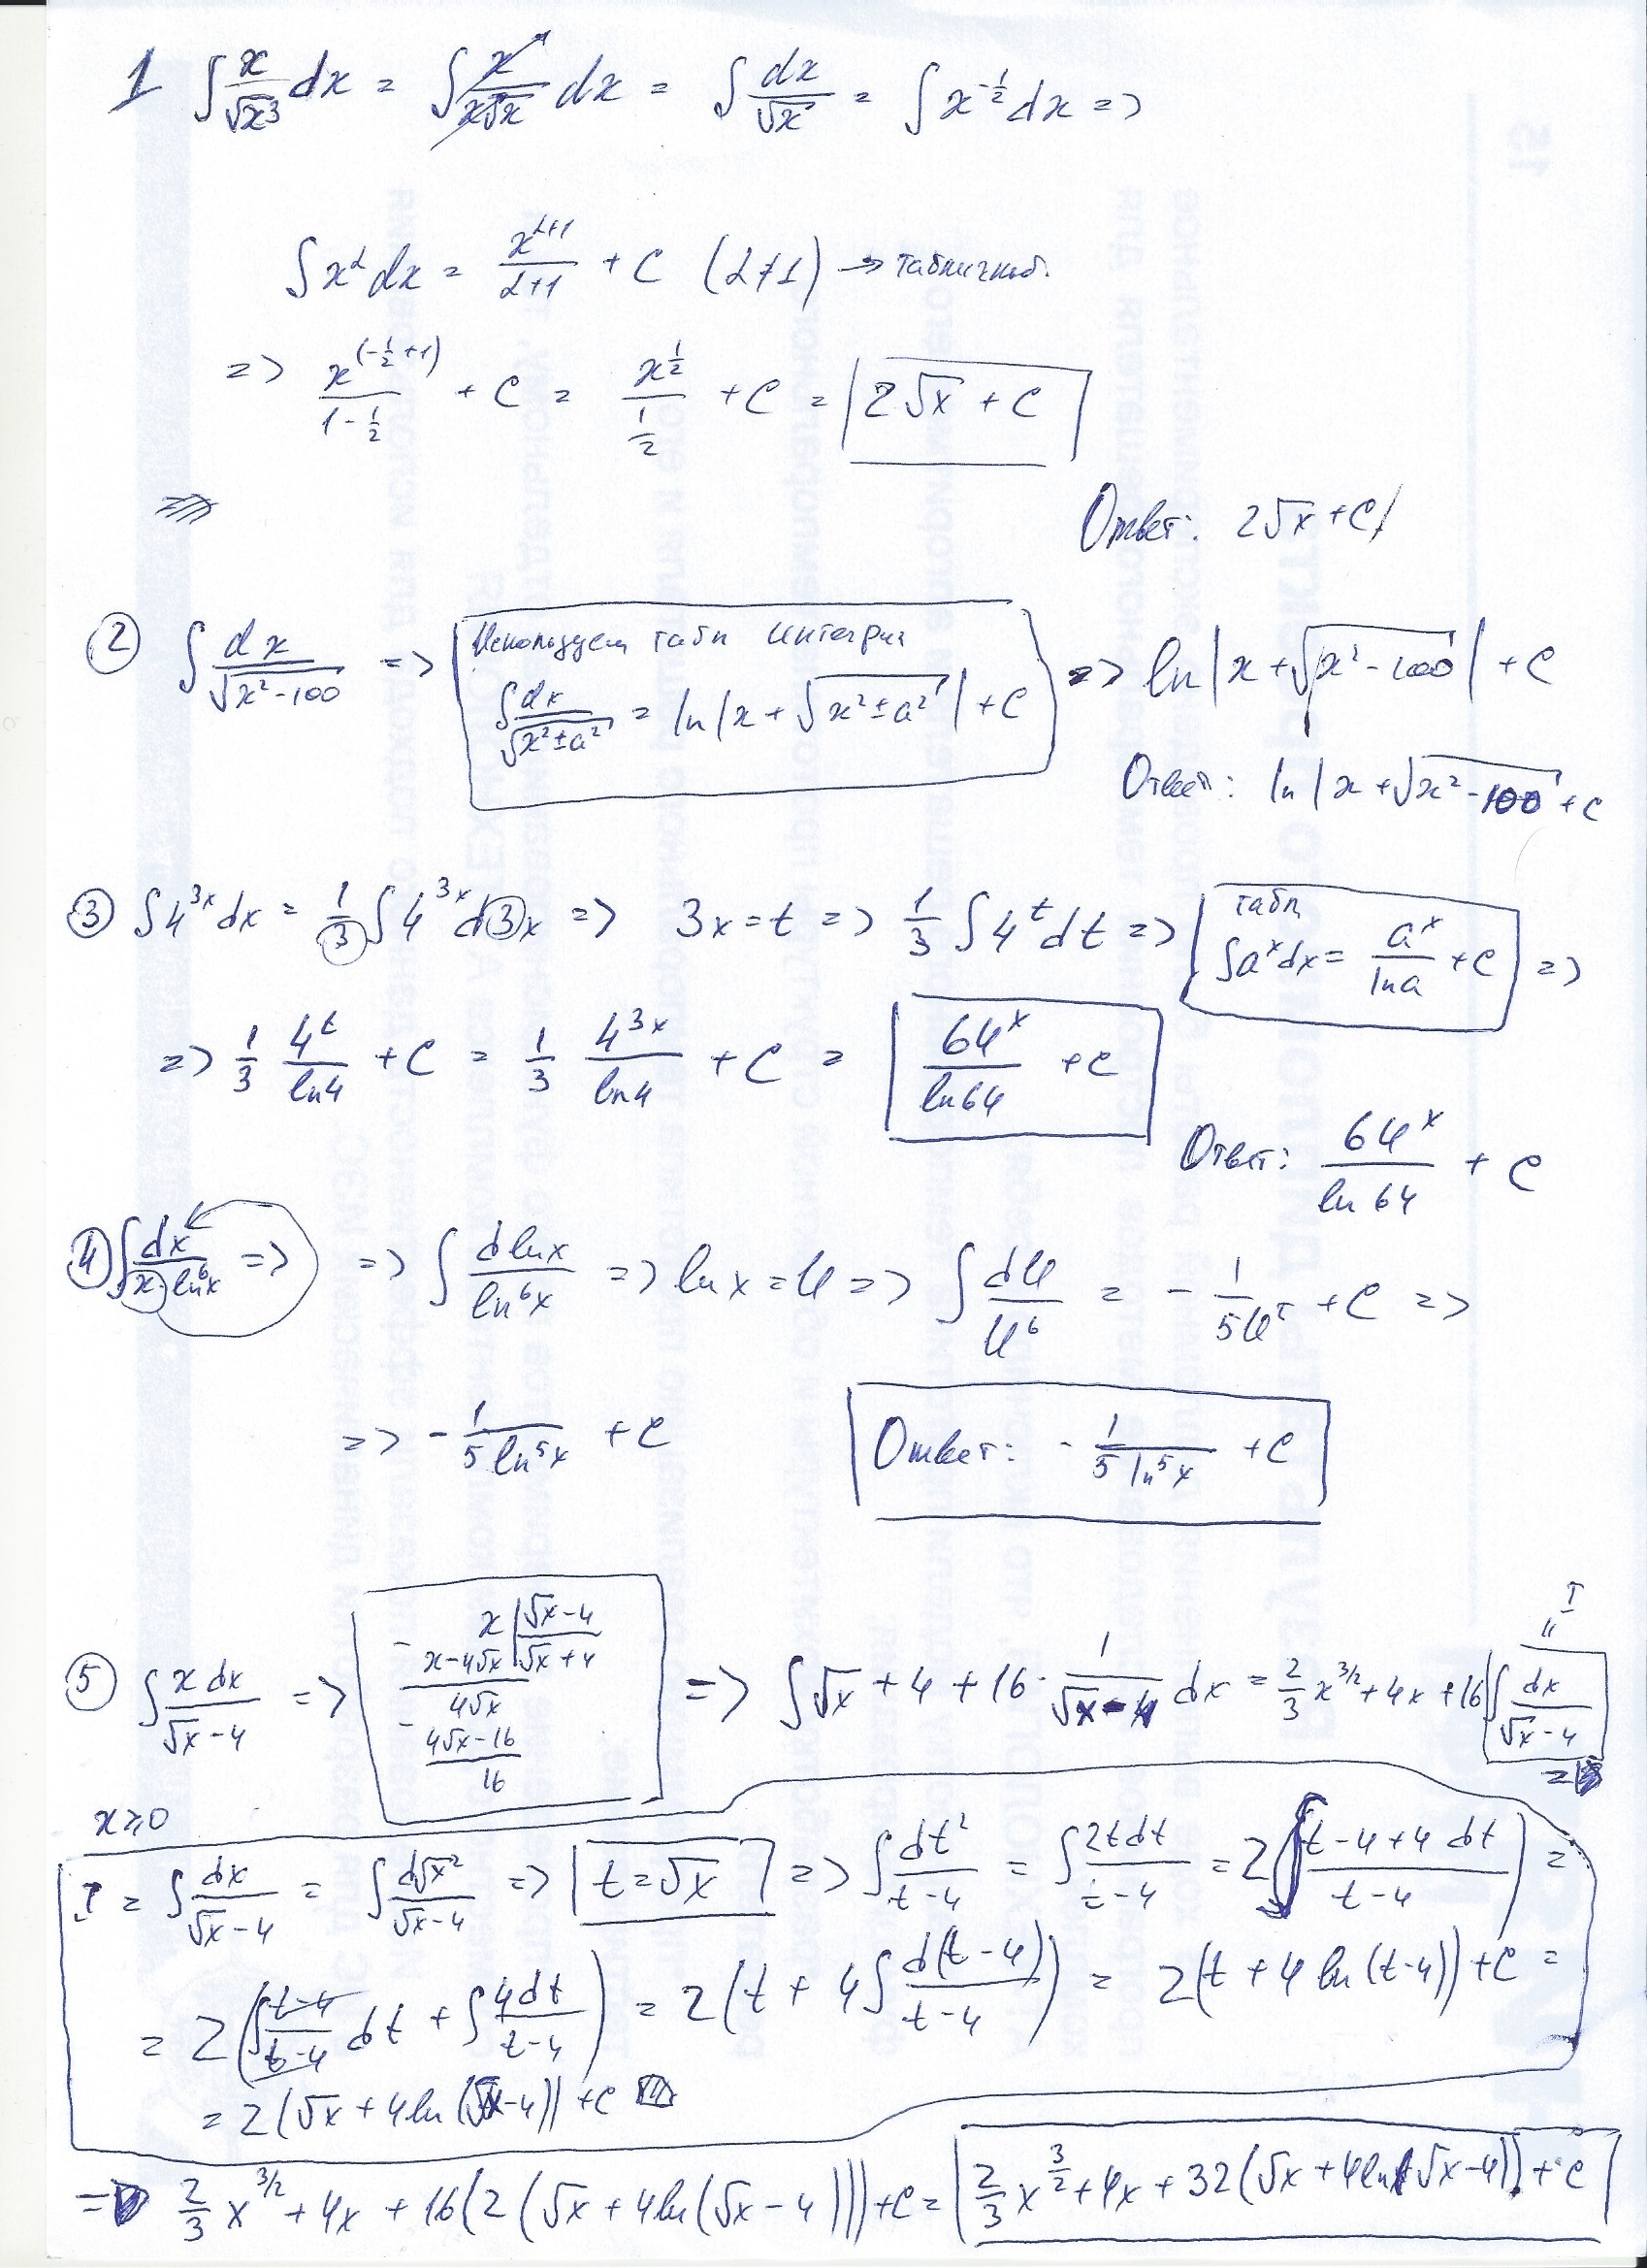 1 ∫ x/√x³ dx = ∫ x/(x√x) dx = ∫ dx/√x = ∫ x^(-1/2) dx =>
∫ x^α dx = x^(α+1)/(α+1) + C (α≠1) → табличный.
=> x^(-1/2+1)/(1-1/2) + C = x^(1/2)/(1/2) + C = 2√x + C
Ответ: 2√x + C
② ∫ dx/√(x²-100) => Используем табл интеграл ∫ dx/√(x²±a²) = ln|x+√(x²±a²)| + C => ln|x+√(x²-100)| + C
Ответ: ln|x+√(x²-100) + C
③ ∫ 4^(3x) dx = 1/3 ∫ 4^(3x) d3x => 3x = t => 1/3 ∫ 4^t dt => табл ∫ a^x dx = a^x/ln a + C =>
=> 1/3 4^t/ln4 + C = 1/3 4^(3x)/ln4 + C = 64^x/ln64 + C
Ответ: 64^x/ln 64 + C
④ ∫ dx/(x·ln⁶x) => => ∫ dlnx/ln⁶x => ln x = u => ∫ du/u⁶ = - 1/(5u⁵) + C =>
=> - 1/(5 ln⁵x) + C Ответ: - 1/(5 ln⁵x) + C
⑤ ∫ x dx/(√x-4) =>
x | √x-4
- x-4√x | √x+4
4√x
- 4√x-16
16
=> ∫ √x + 4 + 16· 1/(√x-4) dx = 2/3 x^(3/2) + 4x + 16 ∫ dx/(√x-4) =
I
x ≥ 0
I = ∫ dx/(√x-4) = ∫ d√x²/(√x-4) => t = √x => ∫ dt²/(t-4) = ∫ 2tdt/(t-4) = 2(∫ (t-4+4 dt)/(t-4)) =
= 2(∫ (t-4)/(t-4) dt + ∫ 4dt/(t-4)) = 2(t + 4∫ d(t-4)/(t-4)) = 2(t + 4 ln(t-4)) + C =
= 2(√x + 4ln(√x-4)) + C
= 2/3 x^(3/2) + 4x + 16(2(√x + 4ln(√x-4))) + C = 2/3 x^(3/2) + 4x + 32(√x + 4ln(√x-4)) + C